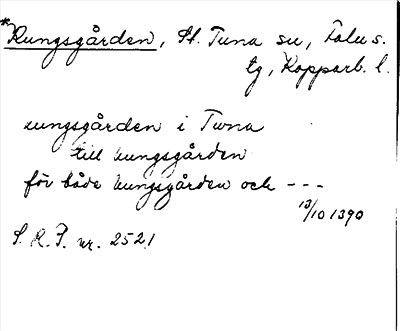 *Kungsgården, St. Tuna sn, Falu s.
tg, Kopparb. l.
kungsgården i Tuna
till kungsgården
för både kungsgården och ---
13/10 1390
S. R. P. nr. 2521